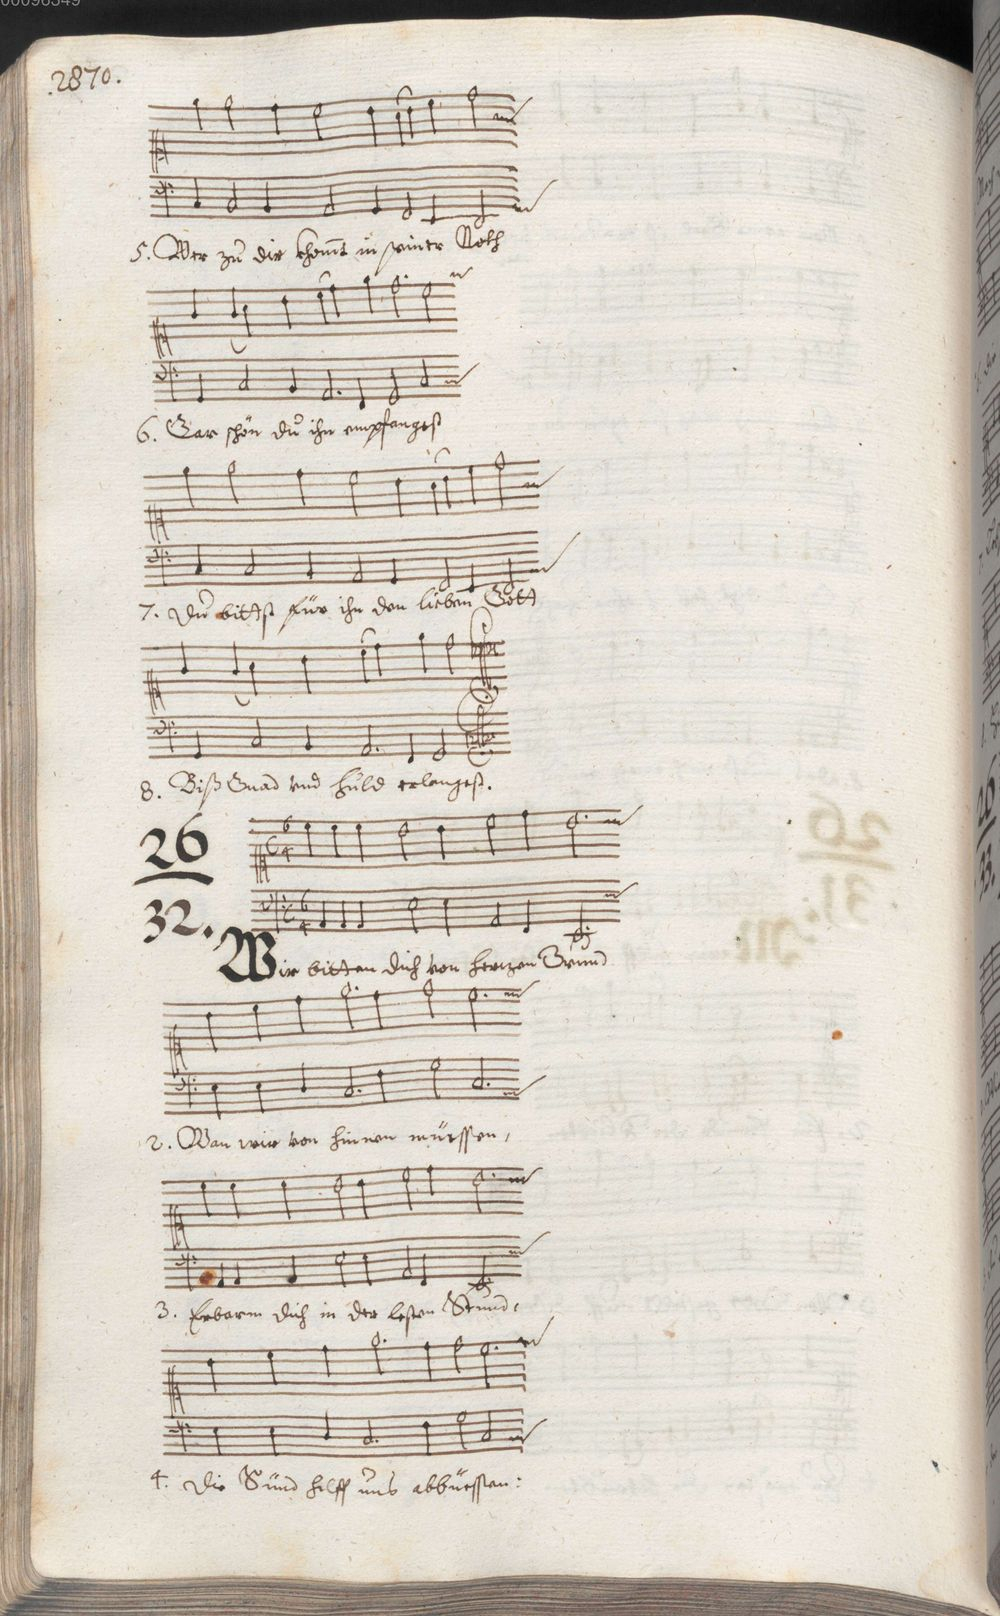 .2870.
5. Wer zu dir khom̄t in seiner Noth
6. Gar schön du ihn empfangest
7. Du bittst für ihn den lieben Gott
8. Biß Gnad und Huld erlangest.
26
32.
6
4
6
4
Wir bitten dich von herzen Grund
2. Wan wir von hinnen müessen,
3. Erbarm dich in der lesten Stund:
4. Die Sünd hilff uns abbüessen: